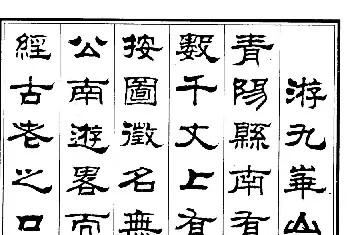 游九崋山
青陽縣南有
數千丈上有
按圖徵名無
公南遊畧而
經古老之口